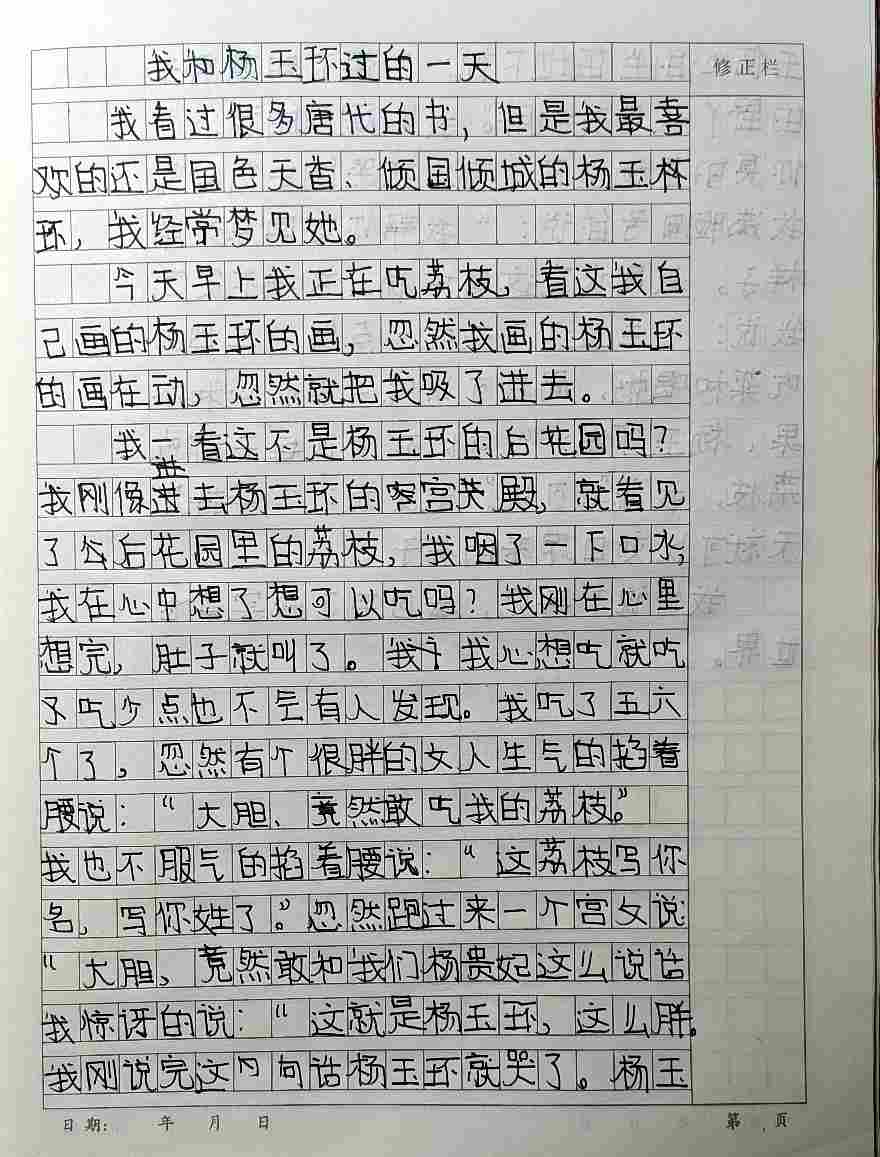 我和杨玉环过的一天
修正栏
我看过很多唐代的书，但是我最喜
欢的还是国色天香、倾国倾城的杨玉杯
环，我经常梦见她。
今天早上我正在吃荔枝，看这我自
己画的杨玉环的画，忽然我画的杨玉环
的画在动，忽然就把我吸了进去。
我一看这不是杨玉环的后花园吗？
进
我刚像进去杨玉环的宫殿，就看见
了后花园里的荔枝，我咽了一下口水，
我在心中想了想可以吃吗？我刚在心里
想完，肚子就叫了。我心想吃就吃
了吃少点也不会有人发现。我吃了五六
个了，忽然有个很胖的女人生气的掐着
腰说：“大胆、竟然敢吃我的荔枝。”
我也不服气的掐着腰说：“这荔枝写你
名，写你姓了。”忽然跑过来一个宫女说
“大胆，竟然敢和我们杨贵妃这么说话
我惊讶的说：“这就是杨玉环，这么胖。
我刚说完这句话杨玉环就哭了。杨玉
日期： 年 月 日 第 页